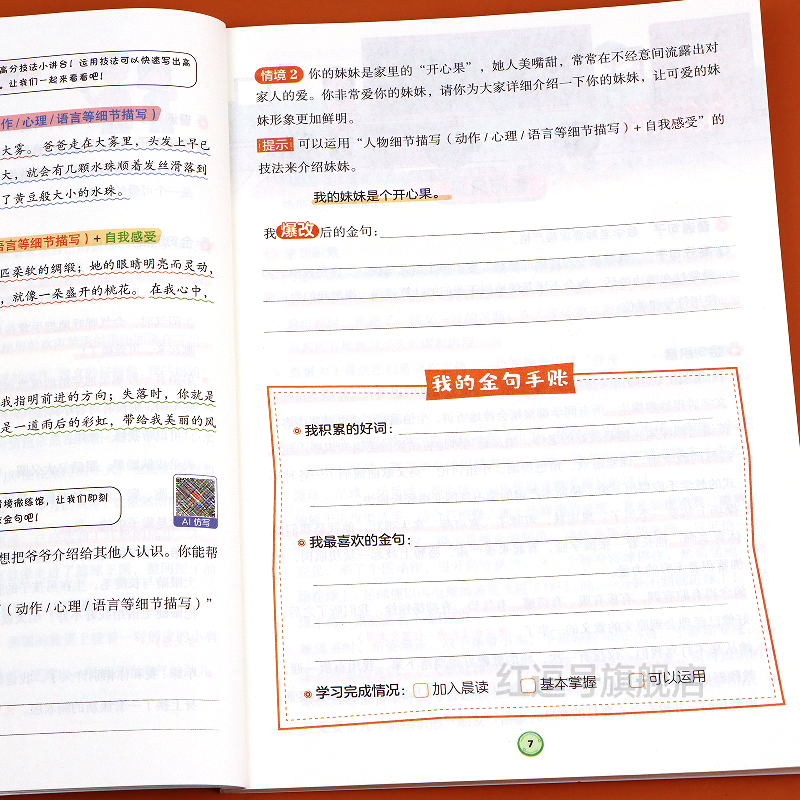 高分技法小讲台！运用技法可以快速写出高
，让我们一起来看看吧！
作/心理/语言等细节描写）
大雾。爸爸走在大雾里，头发上早已
大，就会有几颗水珠顺着发丝滑落到
了黄豆般大小的水珠。
语言等细节描写）+自我感受
匹柔软的绸缎；她的眼睛明亮而灵动，
，就像一朵盛开的桃花。在我心中，
我指明前进的方向；失落时，你就是
是一道雨后的彩虹，带给我美丽的风
情境微练馆，让我们即刻
金句吧！
AI仿写
想把爷爷介绍给其他人认识。你能帮
（动作/心理/语言等细节描写）”
情境2 你的妹妹是家里的“开心果”，她人美嘴甜，常常在不经意间流露出对
家人的爱。你非常爱你的妹妹，请你为大家详细介绍一下你的妹妹，让可爱的妹
妹形象更加鲜明。
提示 可以运用“人物细节描写（动作/心理/语言等细节描写）+自我感受”的
技法来介绍妹妹。
我的妹妹是个开心果。
我爆改后的金句：
我的金句手账
我积累的好词：
我最喜欢的金句：
学习完成情况： 加入晨读 基本掌握 可以运用
红逗号旗舰店
7